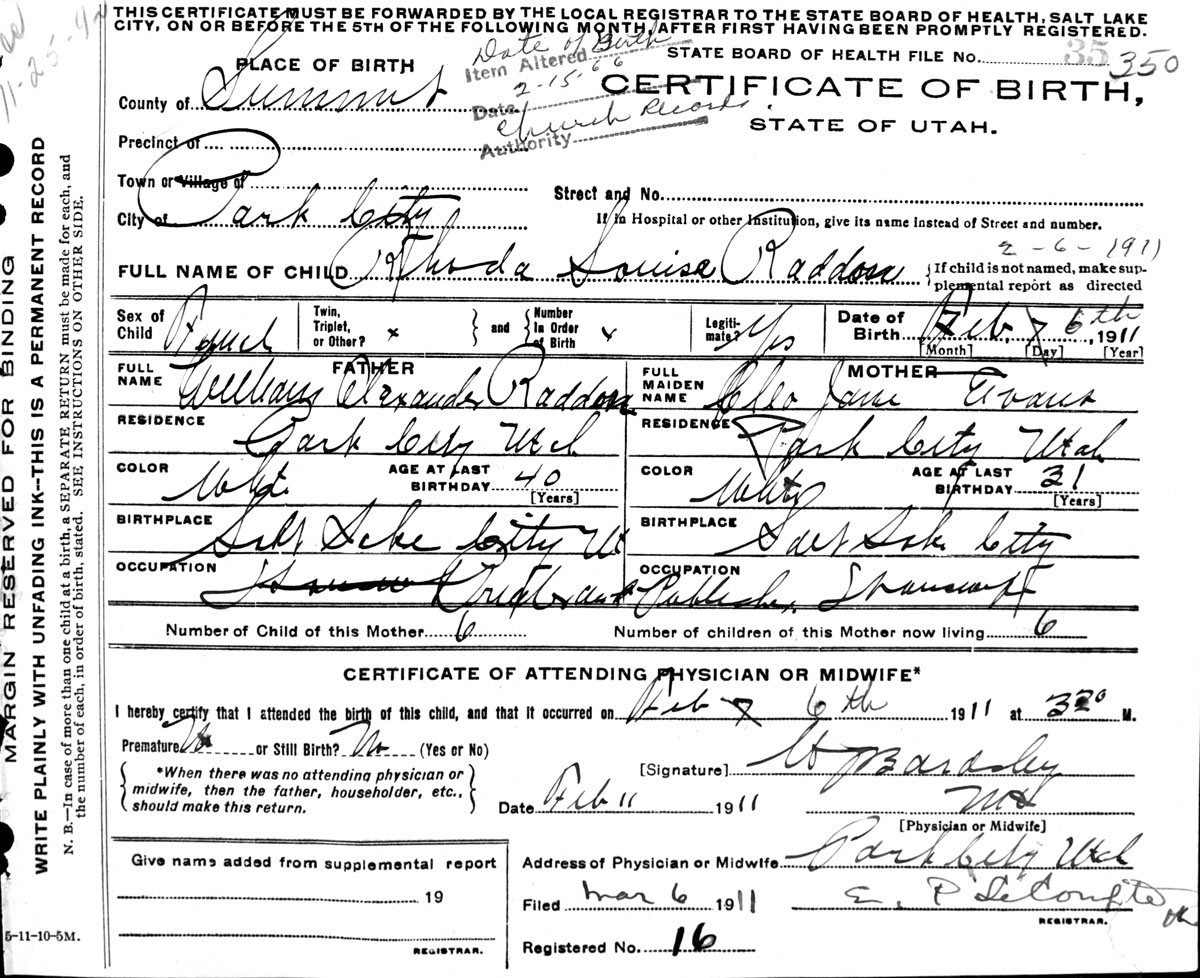 THIS CERTIFICATE MUST BE FORWARDED BY THE LOCAL REGISTRAR TO THE STATE BOARD OF HEALTH, SALT LAKE
CITY, ON OR BEFORE THE 5TH OF THE FOLLOWING MONTH, AFTER FIRST HAVING BEEN PROMPTLY REGISTERED.
11-25-
Date of Birth
Item Altered
2-15-66
Date
Church Records.
Authority
STATE BOARD OF HEALTH FILE No. 35 350
CERTIFICATE OF BIRTH,
STATE OF UTAH.
PLACE OF BIRTH
County of Summit
Precinct of
Town or Village of
Street and No.
City of Park City
If in Hospital or other Institution, give its name instead of Street and number.
2-6-1911
FULL NAME OF CHILD Rhoda Louise Raddon
If child is not named, make sup-
plemental report as directed
Sex of Child Femal
Twin, Triplet, or Other? x
and Number In Order of Birth
Legiti-mate? Yes
Date of Birth Feb, 7 6th, 1911
[Month] [Day] [Year]
FATHER
FULL NAME William Alexander Raddon
MOTHER
FULL MAIDEN NAME Cleo Jane Evans
RESIDENCE Park City Utah
RESIDENCE Park City Utah
COLOR White
AGE AT LAST BIRTHDAY 40
[Years]
COLOR White
AGE AT LAST BIRTHDAY 31
[Years]
BIRTHPLACE Salt Lake City Ut
BIRTHPLACE Salt Lake City
OCCUPATION
and Publisher
OCCUPATION
Number of Child of this Mother 6
Number of children of this Mother now living 6
CERTIFICATE OF ATTENDING PHYSICIAN OR MIDWIFE*
I hereby certify that I attended the birth of this child, and that it occurred on Feb 7 6th 1911 at 3 20 M.
Premature No or Still Birth? No (Yes or No)
*When there was no attending physician or
midwife, then the father, householder, etc.,
should make this return.
[Signature] W Bardsley
Date Feb 11 1911
MD
[Physician or Midwife]
Give name added from supplemental report
19
REGISTRAR.
Address of Physician or Midwife Park City Utah
Filed Mar 6 1911
E. P. LeCompte
REGISTRAR.
Registered No. 16
5-11-10-5M.
MARGIN RESERVED FOR BINDING
WRITE PLAINLY WITH UNFADING INK--THIS IS A PERMANENT RECORD
N. B.—In case of more than one child at a birth, a SEPARATE RETURN must be made for each, and
the number of each, in order of birth, stated. SEE INSTRUCTIONS ON OTHER SIDE.